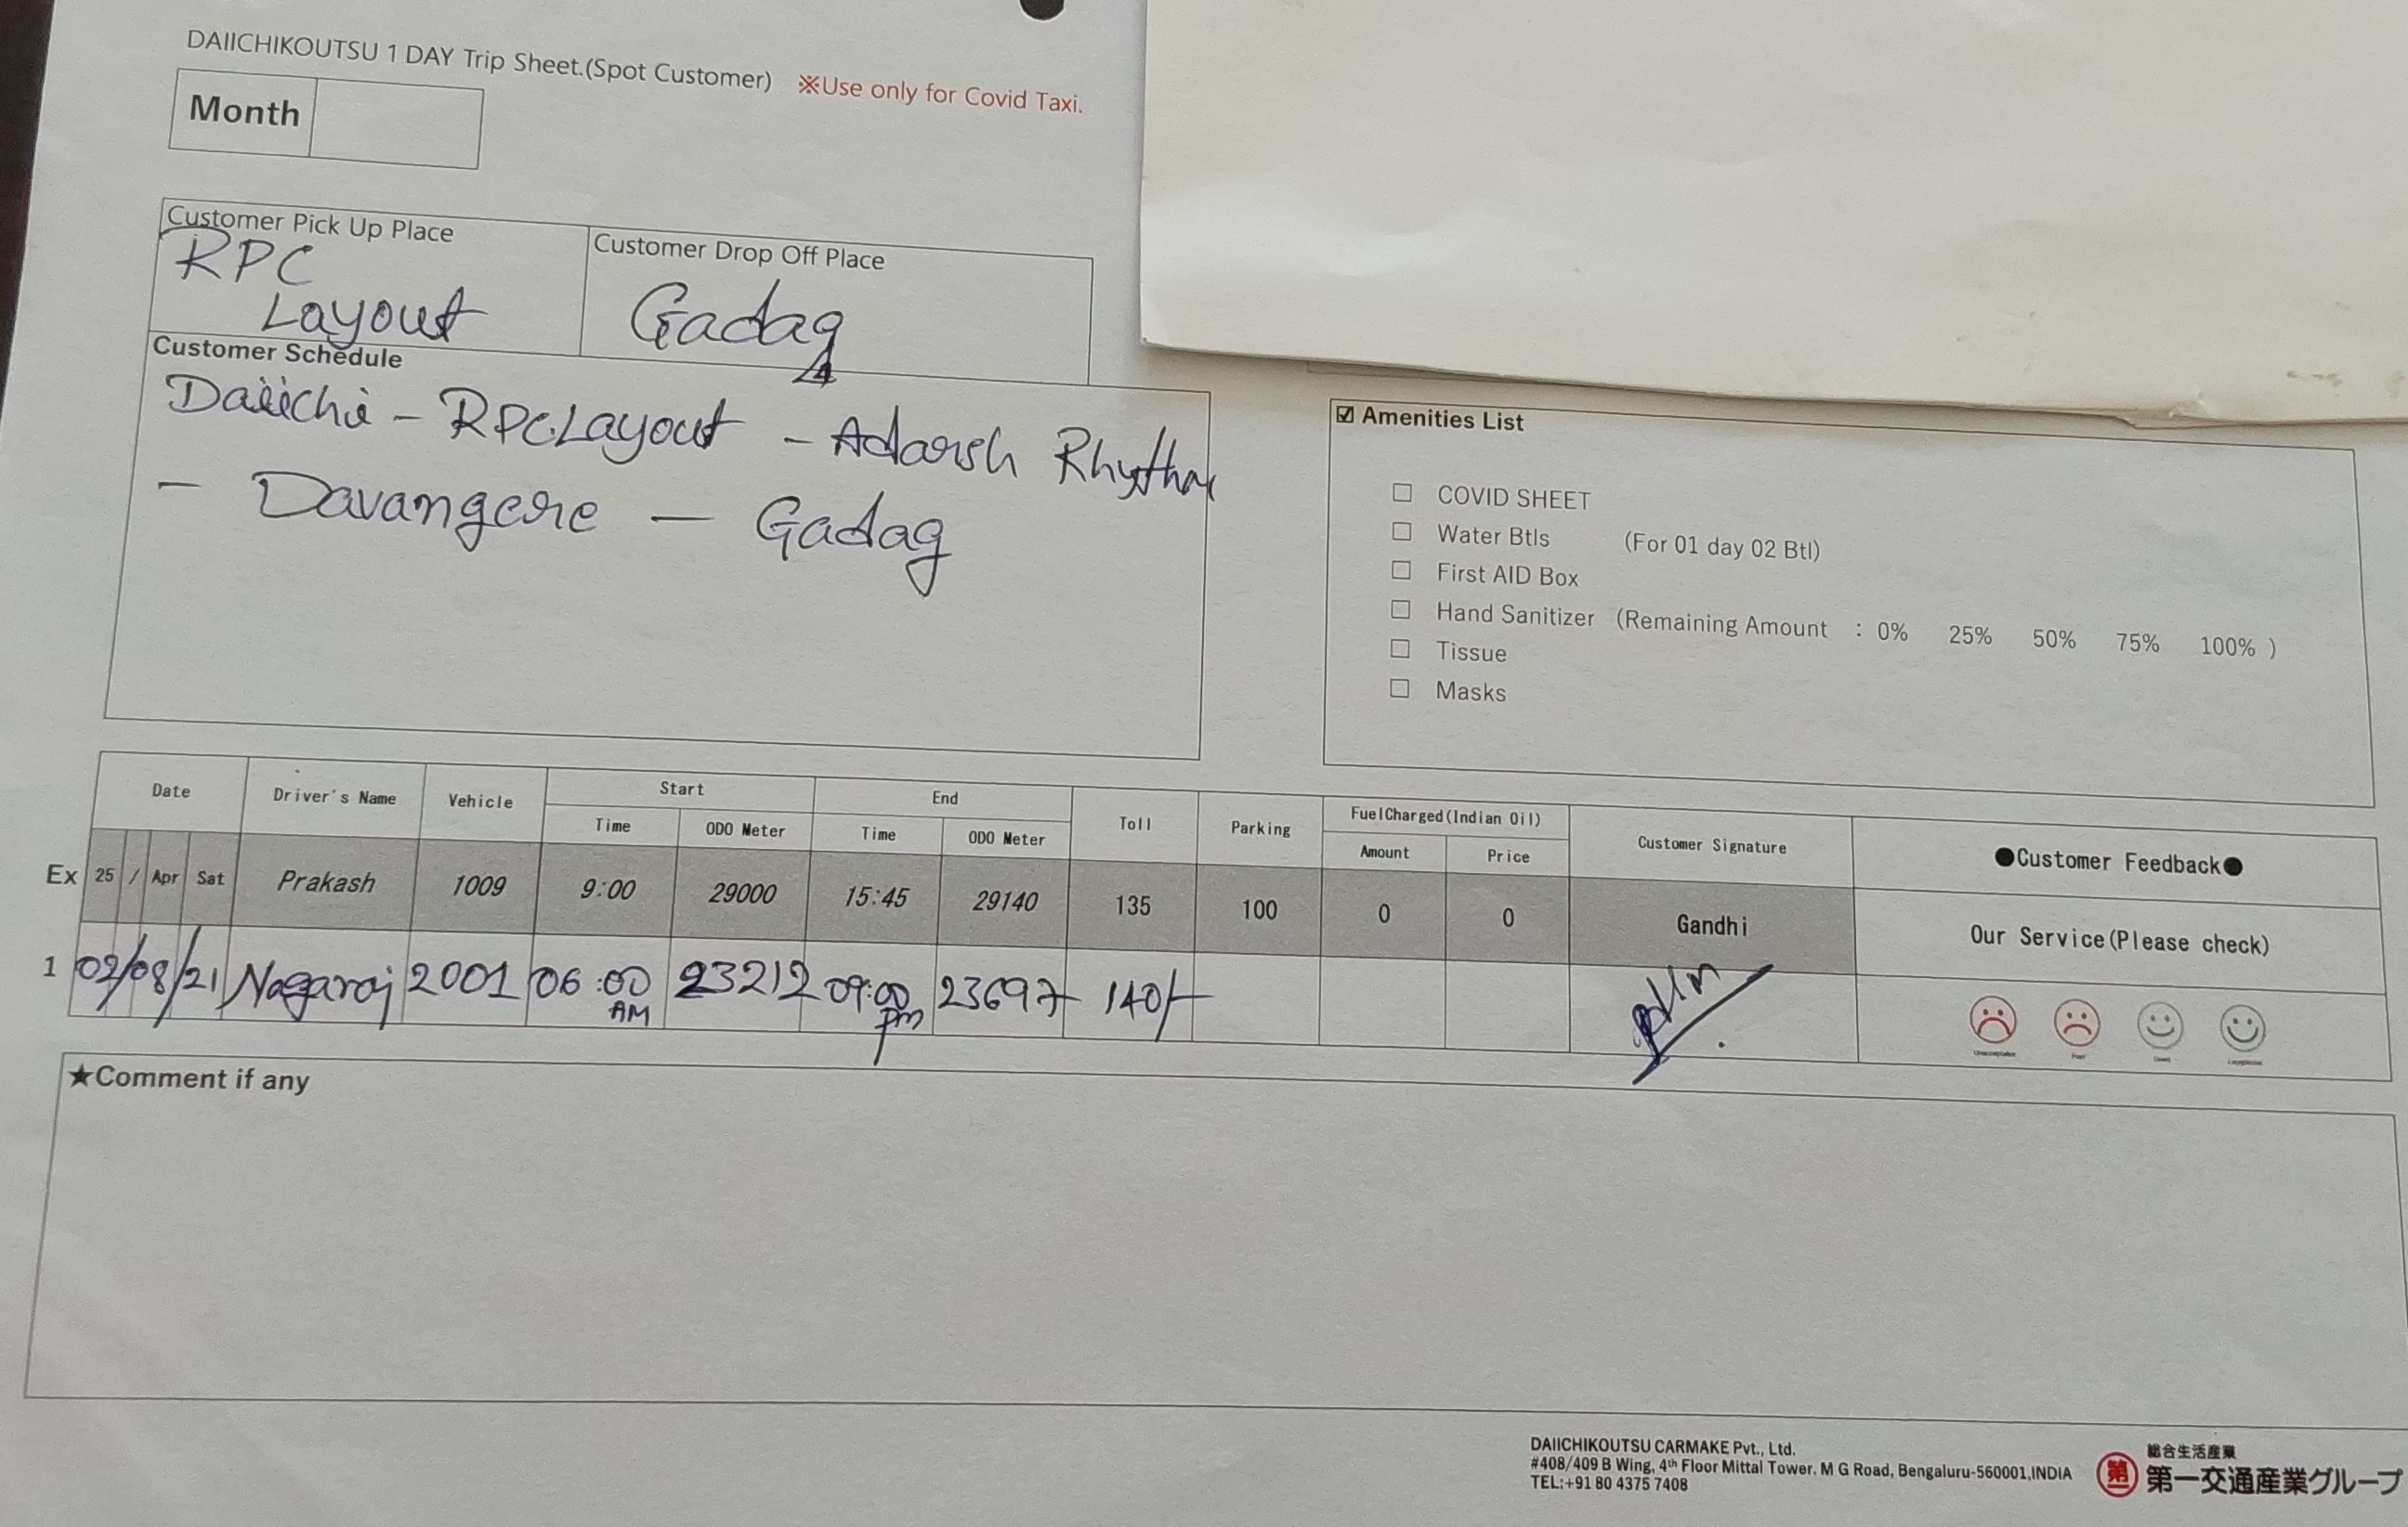 DAIICHIKOUTSU 1 DAY Trip Sheet.(Spot Customer) ※Use only for Covid Taxi.
Month
Customer Pick Up Place
RPC
Layout
Customer Drop Off Place
Gadag
Customer Schedule
Daiichi - RPC Layout - Adarsh Rhythm
- Davangere - Gadag
☑ Amenities List
☐ COVID SHEET
☐ Water Btls (For 01 day 02 Btl)
☐ First AID Box
☐ Hand Sanitizer (Remaining Amount : 0% 25% 50% 75% 100% )
☐ Tissue
☐ Masks
Date Driver's Name Vehicle Start End Toll Parking FuelCharged(Indian Oil) Customer Signature ●Customer Feedback●
Time ODO Meter Time ODO Meter Amount Price
Ex 25 / Apr Sat Prakash 1009 9:00 29000 15:45 29140 135 100 0 0 Gandhi Our Service(Please check)
1 02/08/21 Nagaraj 2001 06:00 AM 23212 09:00 pm 23697 140/-
★Comment if any
DAIICHIKOUTSU CARMAKE Pvt., Ltd.
#408/409 B Wing, 4th Floor Mittal Tower. M G Road, Bengaluru-560001,INDIA
TEL:+91 80 4375 7408
総合生活産業
第一 第一交通産業グループ